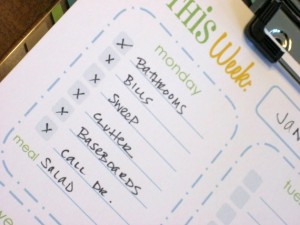 THIS Week.
monday
x BATHROOMS
x BILLS
x SHRED
x CLUTTER
x BASEBOARDS
x CALL DR.
meal SALAD
JAN
tue